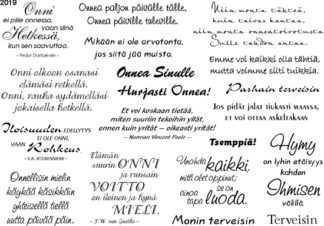 2019
Onni
ei piile onnessa,
vaan siinä
Hetkessä,
kun sen saavuttaa.
- Fedor Dostojevski -
Onnea paljon päivälle tälle,
Onnea päiville tuleville.
Mikään ei ole arvotonta,
jos siitä jää muisto.
Niin monta tähteä,
kuin taivas kantaa,
niin monta onnentoivotusta
Sulle tahdon antaa.
Onni olkoon osanasi
elämäsi retkellä.
Onni, rauha sydämelläsi
jokaisella hetkellä.
Onnea Sinulle
Hurjasti Onnea!
Et voi koskaan tietää,
miten suuriin tekoihin yllät,
ennen kuin yrität – oikeasti yrität!
- Norman Vincent Peale -
Emme voi kaikki olla tähtiä,
mutta voimme silti tuikkia.
Parhain terveisin
Jos pidät jalat tiukasti maassa,
et voi ottaa askeltakaan
Iloisuuden EDELLYTYS
EI OLE ONNI,
VAAN
Rohkeus.
- V.A. KOSKENNIEMI -
Onnellisin mielin
käyköä käsikkäin
yhteisellä tiellä
uutta päivää päin.
Elämän
suurin ONNI
ja runsain
VOITTO
on iloinen ja hyvä
MIELI.
- J.W. von Goethe -
Tsemppiä!
Unohda kaikki,
mitä olet oppinut;
ala
taas luoda.
Monin terveisin
Hymy
on lyhin etäisyys
kahden
Ihmisen
välillä.
Terveisin